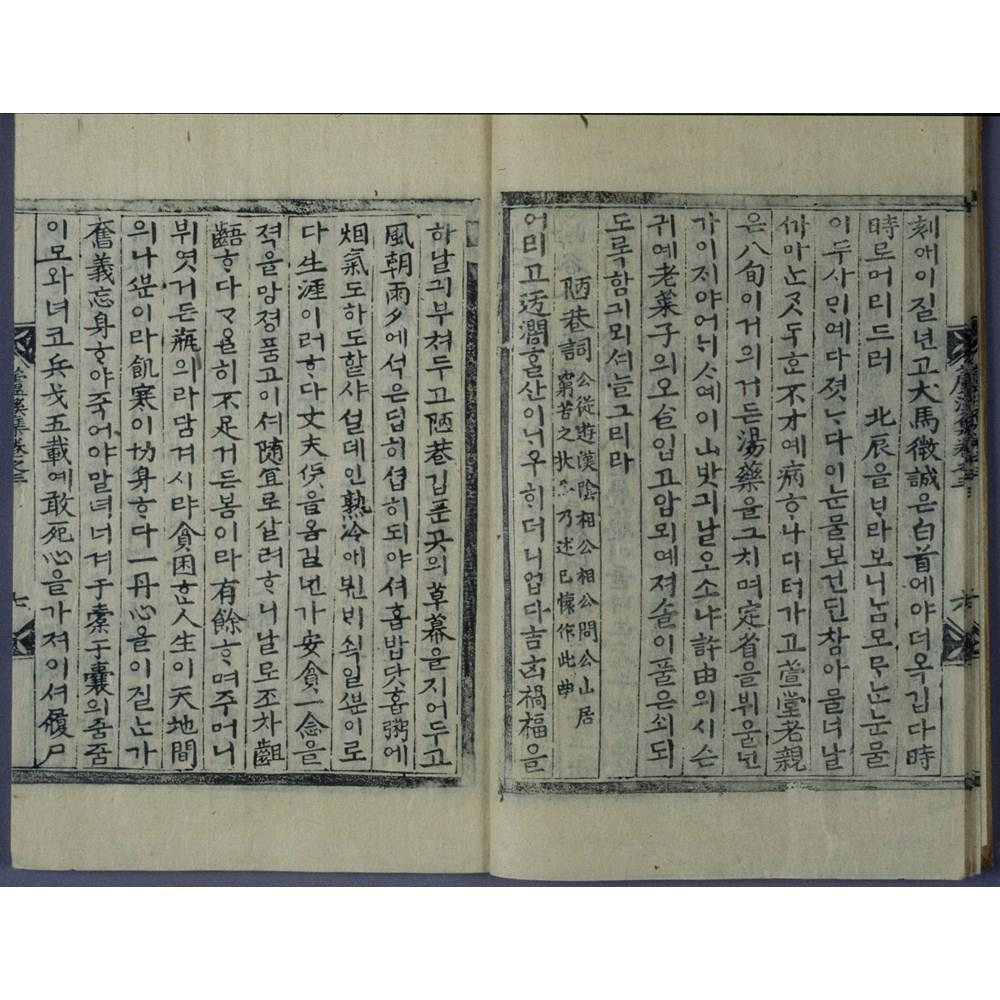 刻애이질넌고犬馬微誠은白首에야더옥깁다時
時로머리드러 北辰을ᄇᆞ라보니ᄂᆞᆷ모ᄅᆞᄂᆞᆫ눈물
이두사ᄆᆡ예다젓ᄂᆞ다이눈물보건ᄃᆡᆫ참아믈너날
가마ᄂᆞᆫᄀᆞᆺ득ᄒᆞᆫ不才예病ᄒᆞ나디터가고萱堂老親
은八旬이거의거든湯藥을그치며定省을뷔울넌
가이제야어ᄂᆡᄉᆞ예이山밧긔날오소냐許由의시슨
귀예老萊子의오ᄉᆞᆯ입고압뫼예져솔이풀은쇠되
도록함긔뫼셔늘그리라
陋巷詞 公從遊漢陰相公相公問公山居
窮苦之狀公乃述己懷作此曲
어리고迃濶ᄒᆞᆯ산이ᄂᆡ우ᄒᆡ더니업다吉凶禍福을
蘆溪集卷之三
하날긔부쳐두고陋巷깁푼곳의草幕을지어두고
風朝雨夕에석은딥히셥히되야셔홉밥닷홉粥에
烟氣도하도할샤설데인熟冷애뷘ᄇᆡ쇡일ᄲᅮᆫ이로
다生涯이러ᄒᆞ다丈夫ᄯᅳᆺ을옴길넌가安貧一念을
젹을망졍품고이셔隨宜로살려ᄒᆞ니날로조차齟
齬ᄒᆞ다ᄀᆞᄋᆞᆯ히不足거든봄이라有餘ᄒᆞ며주머니
뷔엿거든甁의라담겨시랴貧困ᄒᆞᆫ人生이天地間
의나ᄲᅮᆫ이라飢寒이切身ᄒᆞ다一丹心을이질ᄂᆞᆫ가
奮義忘身ᄒᆞ야죽어야말녀너겨于橐于囊의줌줌
이모와녀코兵戈五載예敢死心을가져이셔履尸
蘆溪集卷之三 七